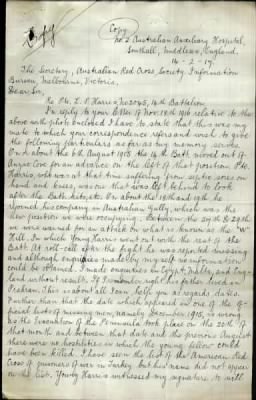 Copy
No 2 Australian Auxiliary Hospital,
Southall, Middlesex, England.
14-2-17.
The Secretary, Australian Red Cross Society, Information
Bureau, Melbourne, Victoria.
Dear Sir,
Re Pte. L. V. Harris No 2045, 14th Battalion
In reply to your letter of Nov. 18th 1916 relative to the
above with photo enclosed I have to state that this was my
mate to which your correspondence refers and wish to give
the following particulars as far as my memory serves.
On or about the 6th August 1915 the 14th Batt. moved out of
Anzac Cove for an advance on the left of that position. Pte.
Harris, who was at that time suffering from septic sores on
hand and knees, was one that was left behind to look
after the Batt. kits etc. On or about the 19th Aug. he
rejoined his company in Australian Gully, which was the
new position we were occupying. Between the and 29th
we were warned for an attack on what is known as the "W"
Hill. In which Young Harris went out with the rest of the
Batt. At roll-call after the fight he was reported missing
and although enquiries made by my self no information
could be obtained. I made enquiries in Egypt, Malta, and Eng-
land without result. If I remember right his father lived in
Prahran. This is about all I can tell you as regards dates.
Further than that the date which appeared in one of the of-
ficial lists of missing men, namely December 1915, is wrong
as the Evacuation of the Peninsula took place on the 20th of
that month and between that date and the previous August
there were no hostilities in which the young fellow could
have been killed. I have seen the list of the American Red
Cross of prisoners of war in Turkey but his name did not appear
on the list. Young Harris witnessed my signature to will